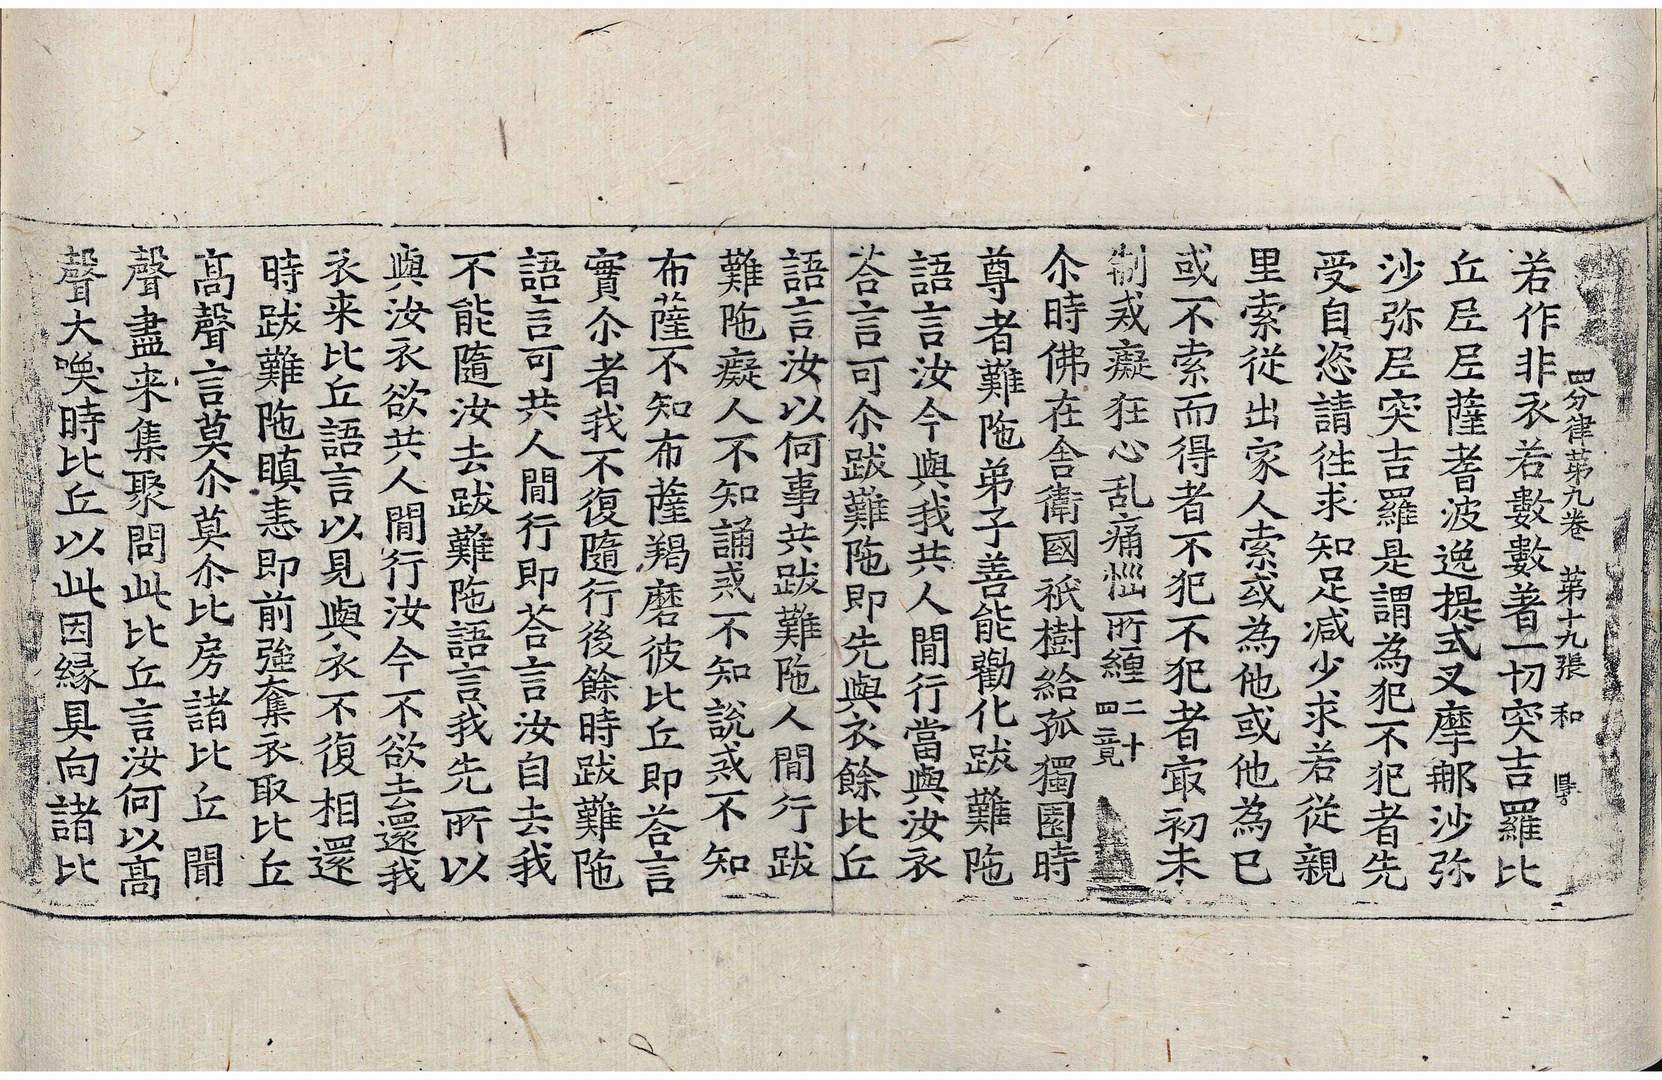 四分律第九卷　第十九張　和
若作非衣若數數著一切突吉羅比
丘尼尼薩耆波逸提式叉摩那沙弥
沙弥尼突吉羅是謂為犯不犯者先
受自恣請往求知足減少求若從親
里索從出家人索或為他或他為已
或不索而得者不犯不犯者㝡初未
制戒癡狂心乱痛惱所纏二十四竟
尒時佛在舍衛國祇樹給孤獨園時
尊者難陁弟子善能勸化跋難陁
語言汝今與我共人閒行當與汝衣
荅言可尒跋難陁即先與衣餘比丘
語言汝以何事共跋難陁人閒行跋
難陁癡人不知誦戒不知說戒不知
布薩不知布薩羯磨彼比丘即荅言
實尒者我不復隨行後餘時跋難陁
語言可共人閒行即荅言汝自去我
不能隨汝去跋難陁語言我先所以
與汝衣欲共人閒行汝今不欲去還我
衣来比丘語言以見與衣不復相還
時跋難陁瞋恚即前強奪衣取比丘
髙聲言莫尒莫尒比房諸比丘聞
聲盡来集聚問此比丘言汝何以髙
聲大喚時比丘以此因縁具向諸比